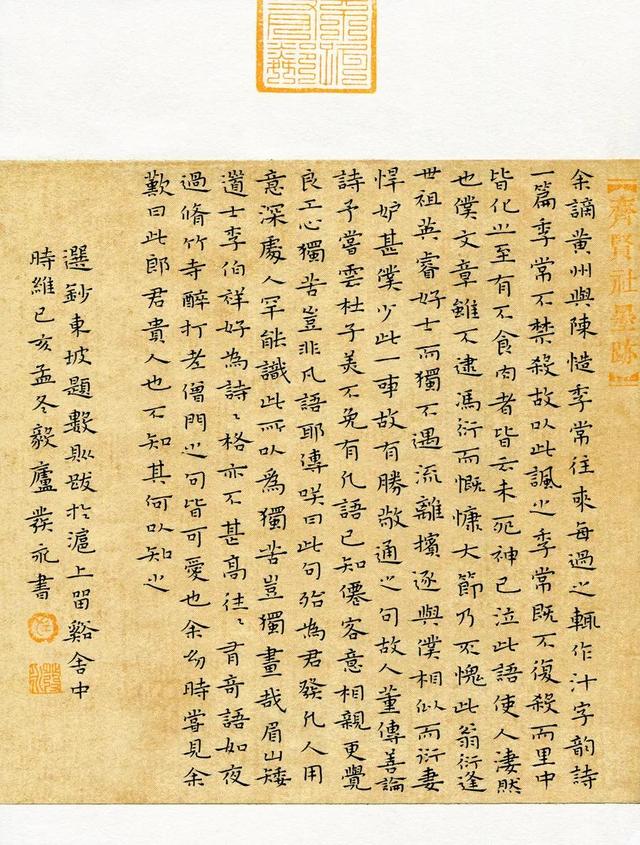 【齊賢社墨跡】
余謫黃州與陳慥季常往來每過之輒作汁字韵詩
一篇季常不禁殺故以此諷之季常既不復殺而里中
皆化之至有不食肉者皆云未死神已泣此語使人淒然
也僕文章雖不逮馮衍而慨慷大節乃不愧此翁衍逢
世祖英睿好士而獨不遇流離擯逐與僕相似而衍妻
悍妒甚僕少此一事故有勝敬通之句故人董傳善論
詩予嘗雲杜子美不免有凡語已知僊客意相親更覺
良工心獨苦豈非凡語耶傳咲曰此句殆為君發凡人用
意深處人罕能識此所以為獨苦豈獨畫哉眉山矮
道士李伯祥好為詩〻格亦不甚高往〻有奇語如夜
過脩竹寺醉打老僧門之句皆可愛也余幼時嘗見余
歎曰此郎君貴人也不知其何以知之
選鈔東坡題數則跋於滬上留谿舍中
時維己亥孟冬毅廬發永書